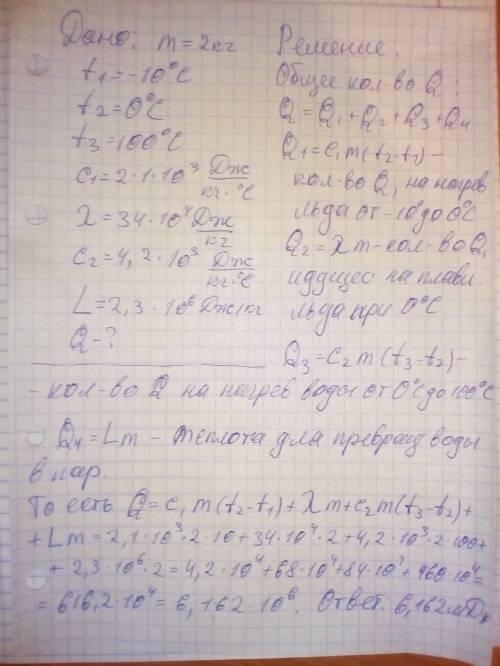 Дано: m=2кг
t1=-10°C
t2=0°C
t3=100°C
c1=2·1·10³ Дж/кг·°C
λ=34·10⁴ Дж/кг
c2=4,2·10³ Дж/кг·°C
L=2,3·10⁶ Дж/кг
Q-?
Решение.
Общее кол-во Q:
Q=Q1+Q2+Q3+Q4
Q1=c1m(t2-t1)-
кол-во Q, на нагрев
льда от -10° до 0°C
Q2=λm-кол-во Q,
идущее на плавл.
льда при 0°C
Q3=c2m(t3-t2)-
-кол-во Q на нагрев воды от 0°C до 100°C
Q4=Lm - теплота для превращ воды
в пар.
То есть Q=c1m(t2-t1)+λm+c2m(t3-t2)+
+Lm=2,1·10³·2·10+34·10⁴·2+4,2·10³·2·100+
+2,3·10⁶·2=4,2·10⁴+68·10⁴+84·10⁴+460·10⁴=
=616,2·10⁴=6,162·10⁶. Ответ: 6,162мДж